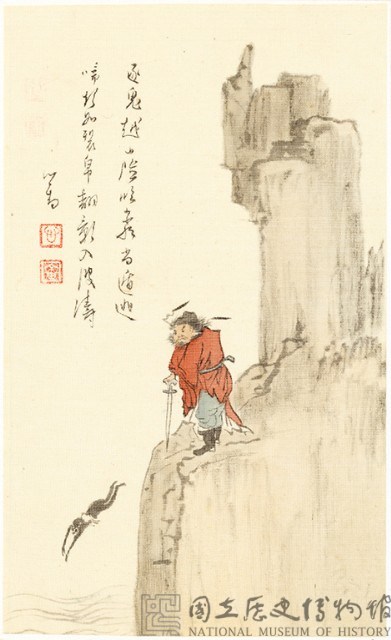 逐鬼越山險尚遁逃
啼如裂帛翻影入波濤
心畬
國立歷史博物館
NATIONAL MUSEUM OF HISTORY